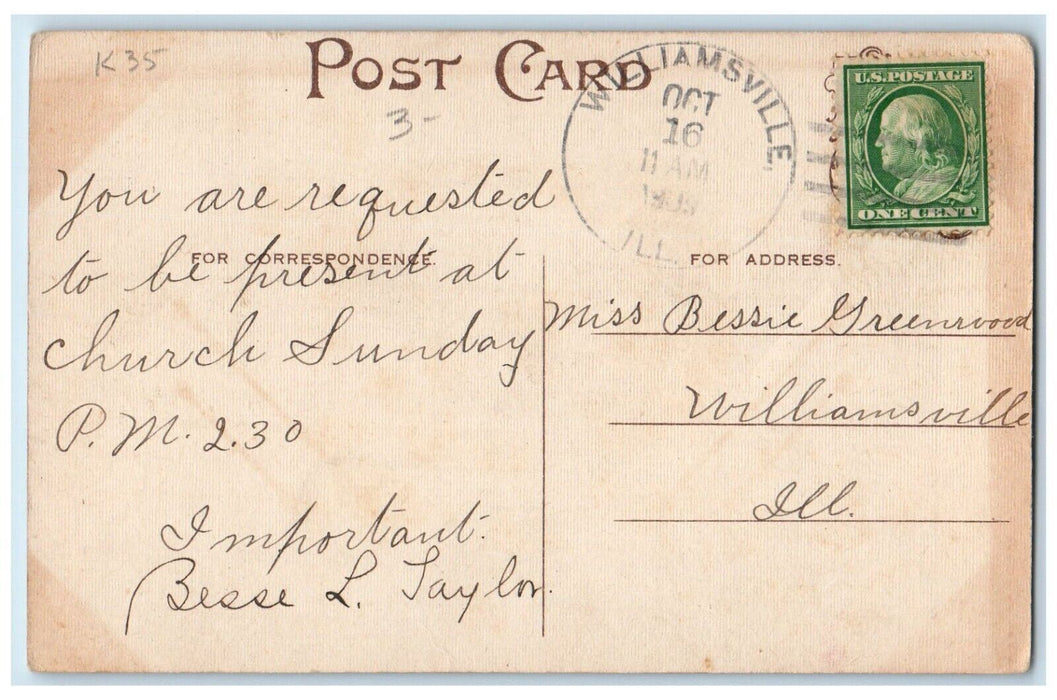 K35
POST CARD
3-
WILLIAMSVILLE,
OCT
16
11 AM
1909
ILL.
U.S. POSTAGE
ONE CENT
You are requested
FOR CORRESPONDENCE.
to be present at
church Sunday
P.M. 2.30
Important.
Besse L. Taylor.
FOR ADDRESS.
Miss Bessie Greenwood
Williamsville
Ill.